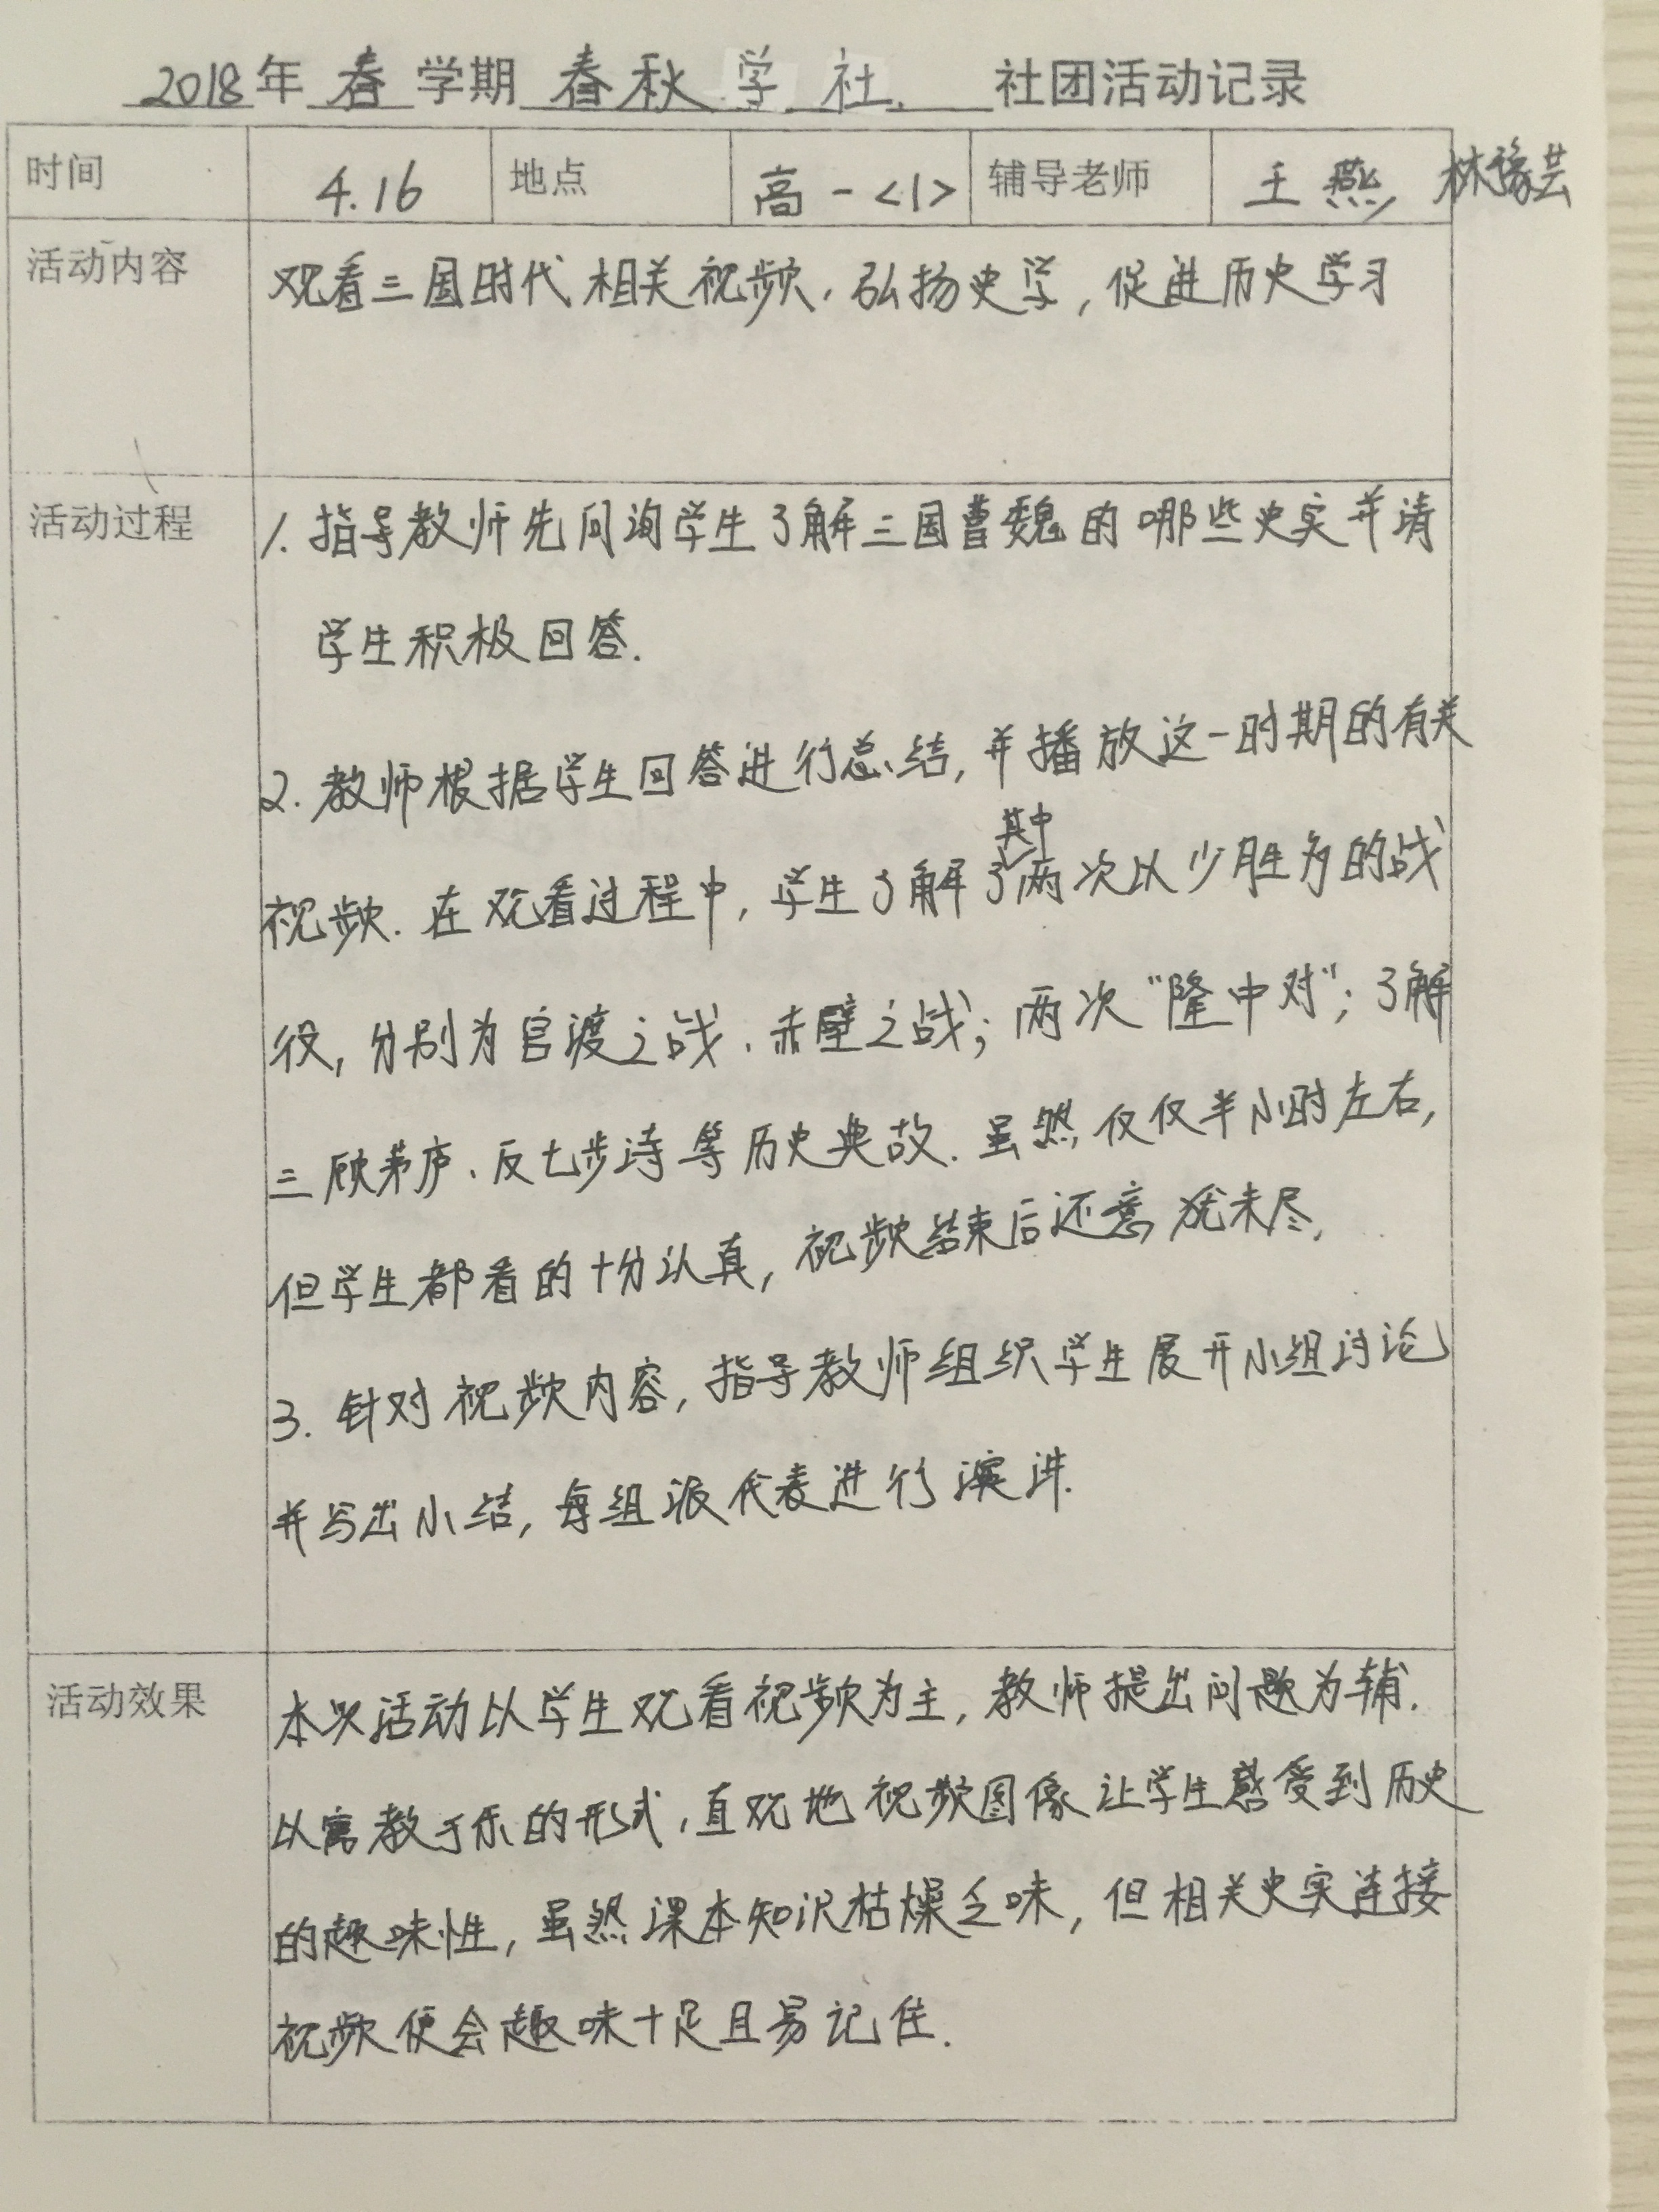 2018年 春 学期 春秋学社. 社团活动记录
时间 4.16 地点 高一<1> 辅导老师 王燕, 林豫芸
活动内容 观看三国时代相关视频,弘扬史学,促进历史学习
活动过程 1.指导教师先问询学生了解三国曹魏的哪些史实并请
学生积极回答.
2.教师根据学生回答进行总结,并播放这一时期的有关
视频.在观看过程中,学生了解了其中两次以少胜多的战
役,分别为官渡之战、赤壁之战;两次“隆中对”;了解
三顾茅庐、反七步诗等历史典故.虽然仅仅半小时左右,
但学生都看的十分认真,视频结束后还意犹未尽,
3.针对视频内容,指导教师组织学生展开小组讨论
并写出小结,每组派代表进行演讲.
活动效果 本次活动以学生观看视频为主,教师提出问题为辅.
以寓教于乐的形式,直观地视频图像让学生感受到历史
的趣味性,虽然课本知识枯燥乏味,但相关史实连接
视频便会趣味十足且易记住.